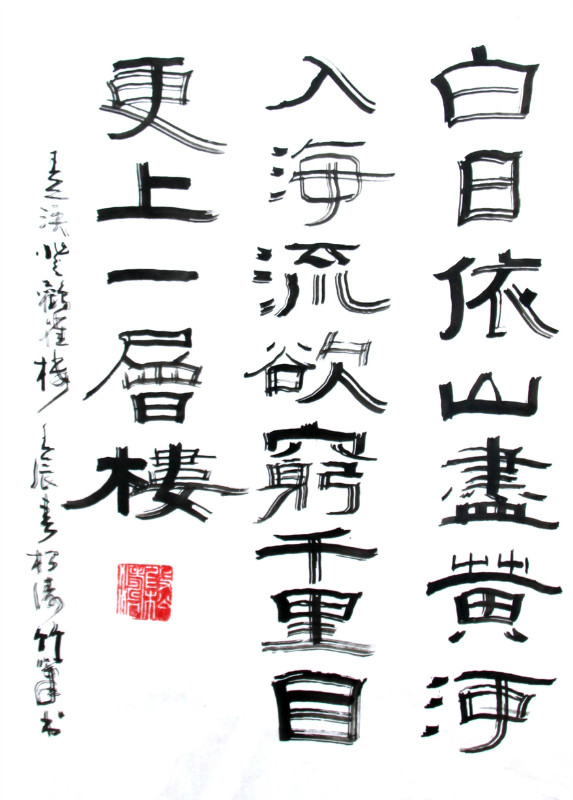 白日依山盡黄河
入海流欲窮千里目
更上一層樓
王之涣登鹳雀楼 壬辰春 涛竹筆书